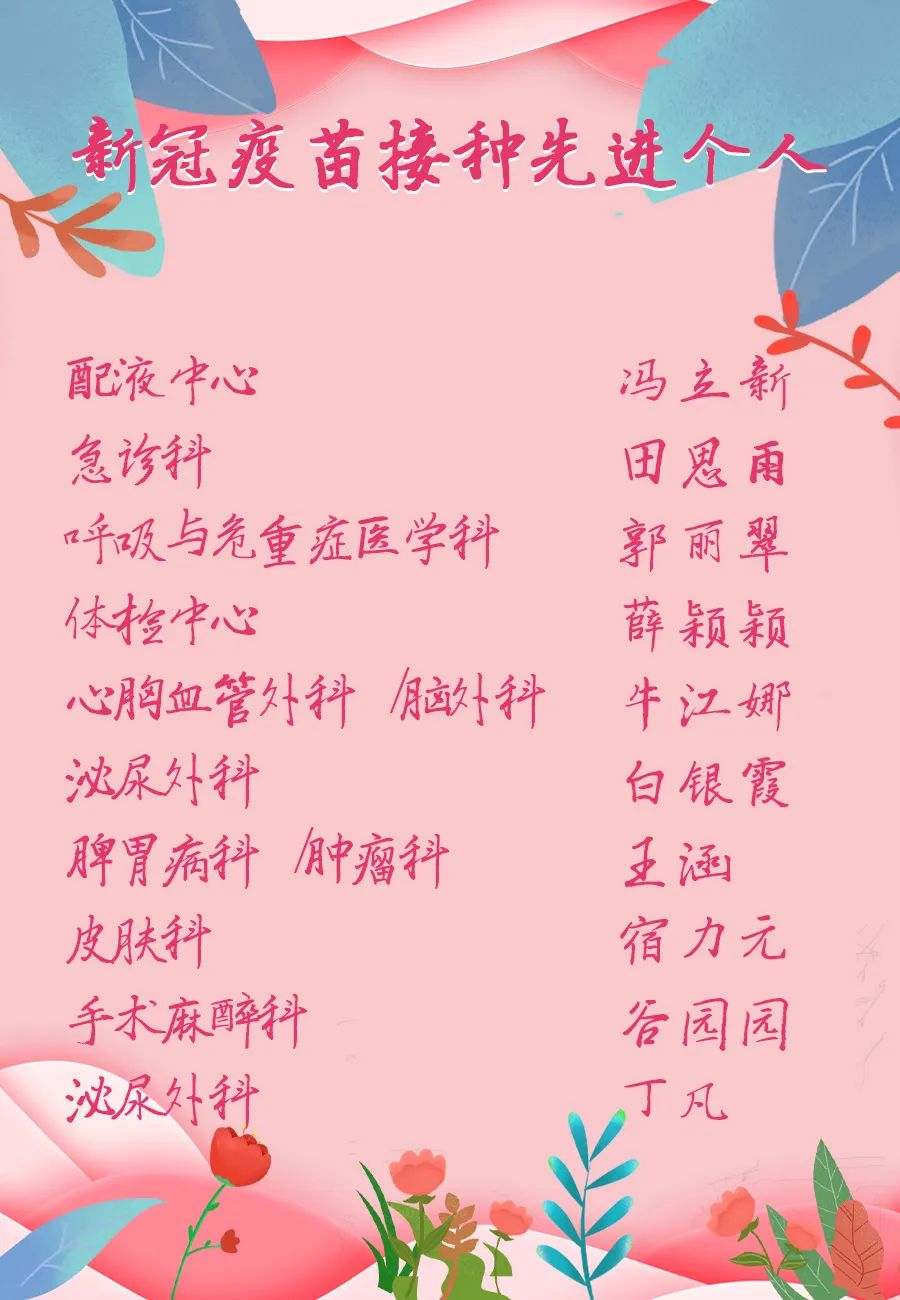 新冠疫苗接种先进个人
配液中心 冯立新
急诊科 田思雨
呼吸与危重症医学科 郭丽翠
体检中心 薛颖颖
心胸血管外科 /脑外科 牛江娜
泌尿外科 白银霞
脾胃病科 /肿瘤科 王涵
皮肤科 宿力元
手术麻醉科 谷园园
泌尿外科 丁凡